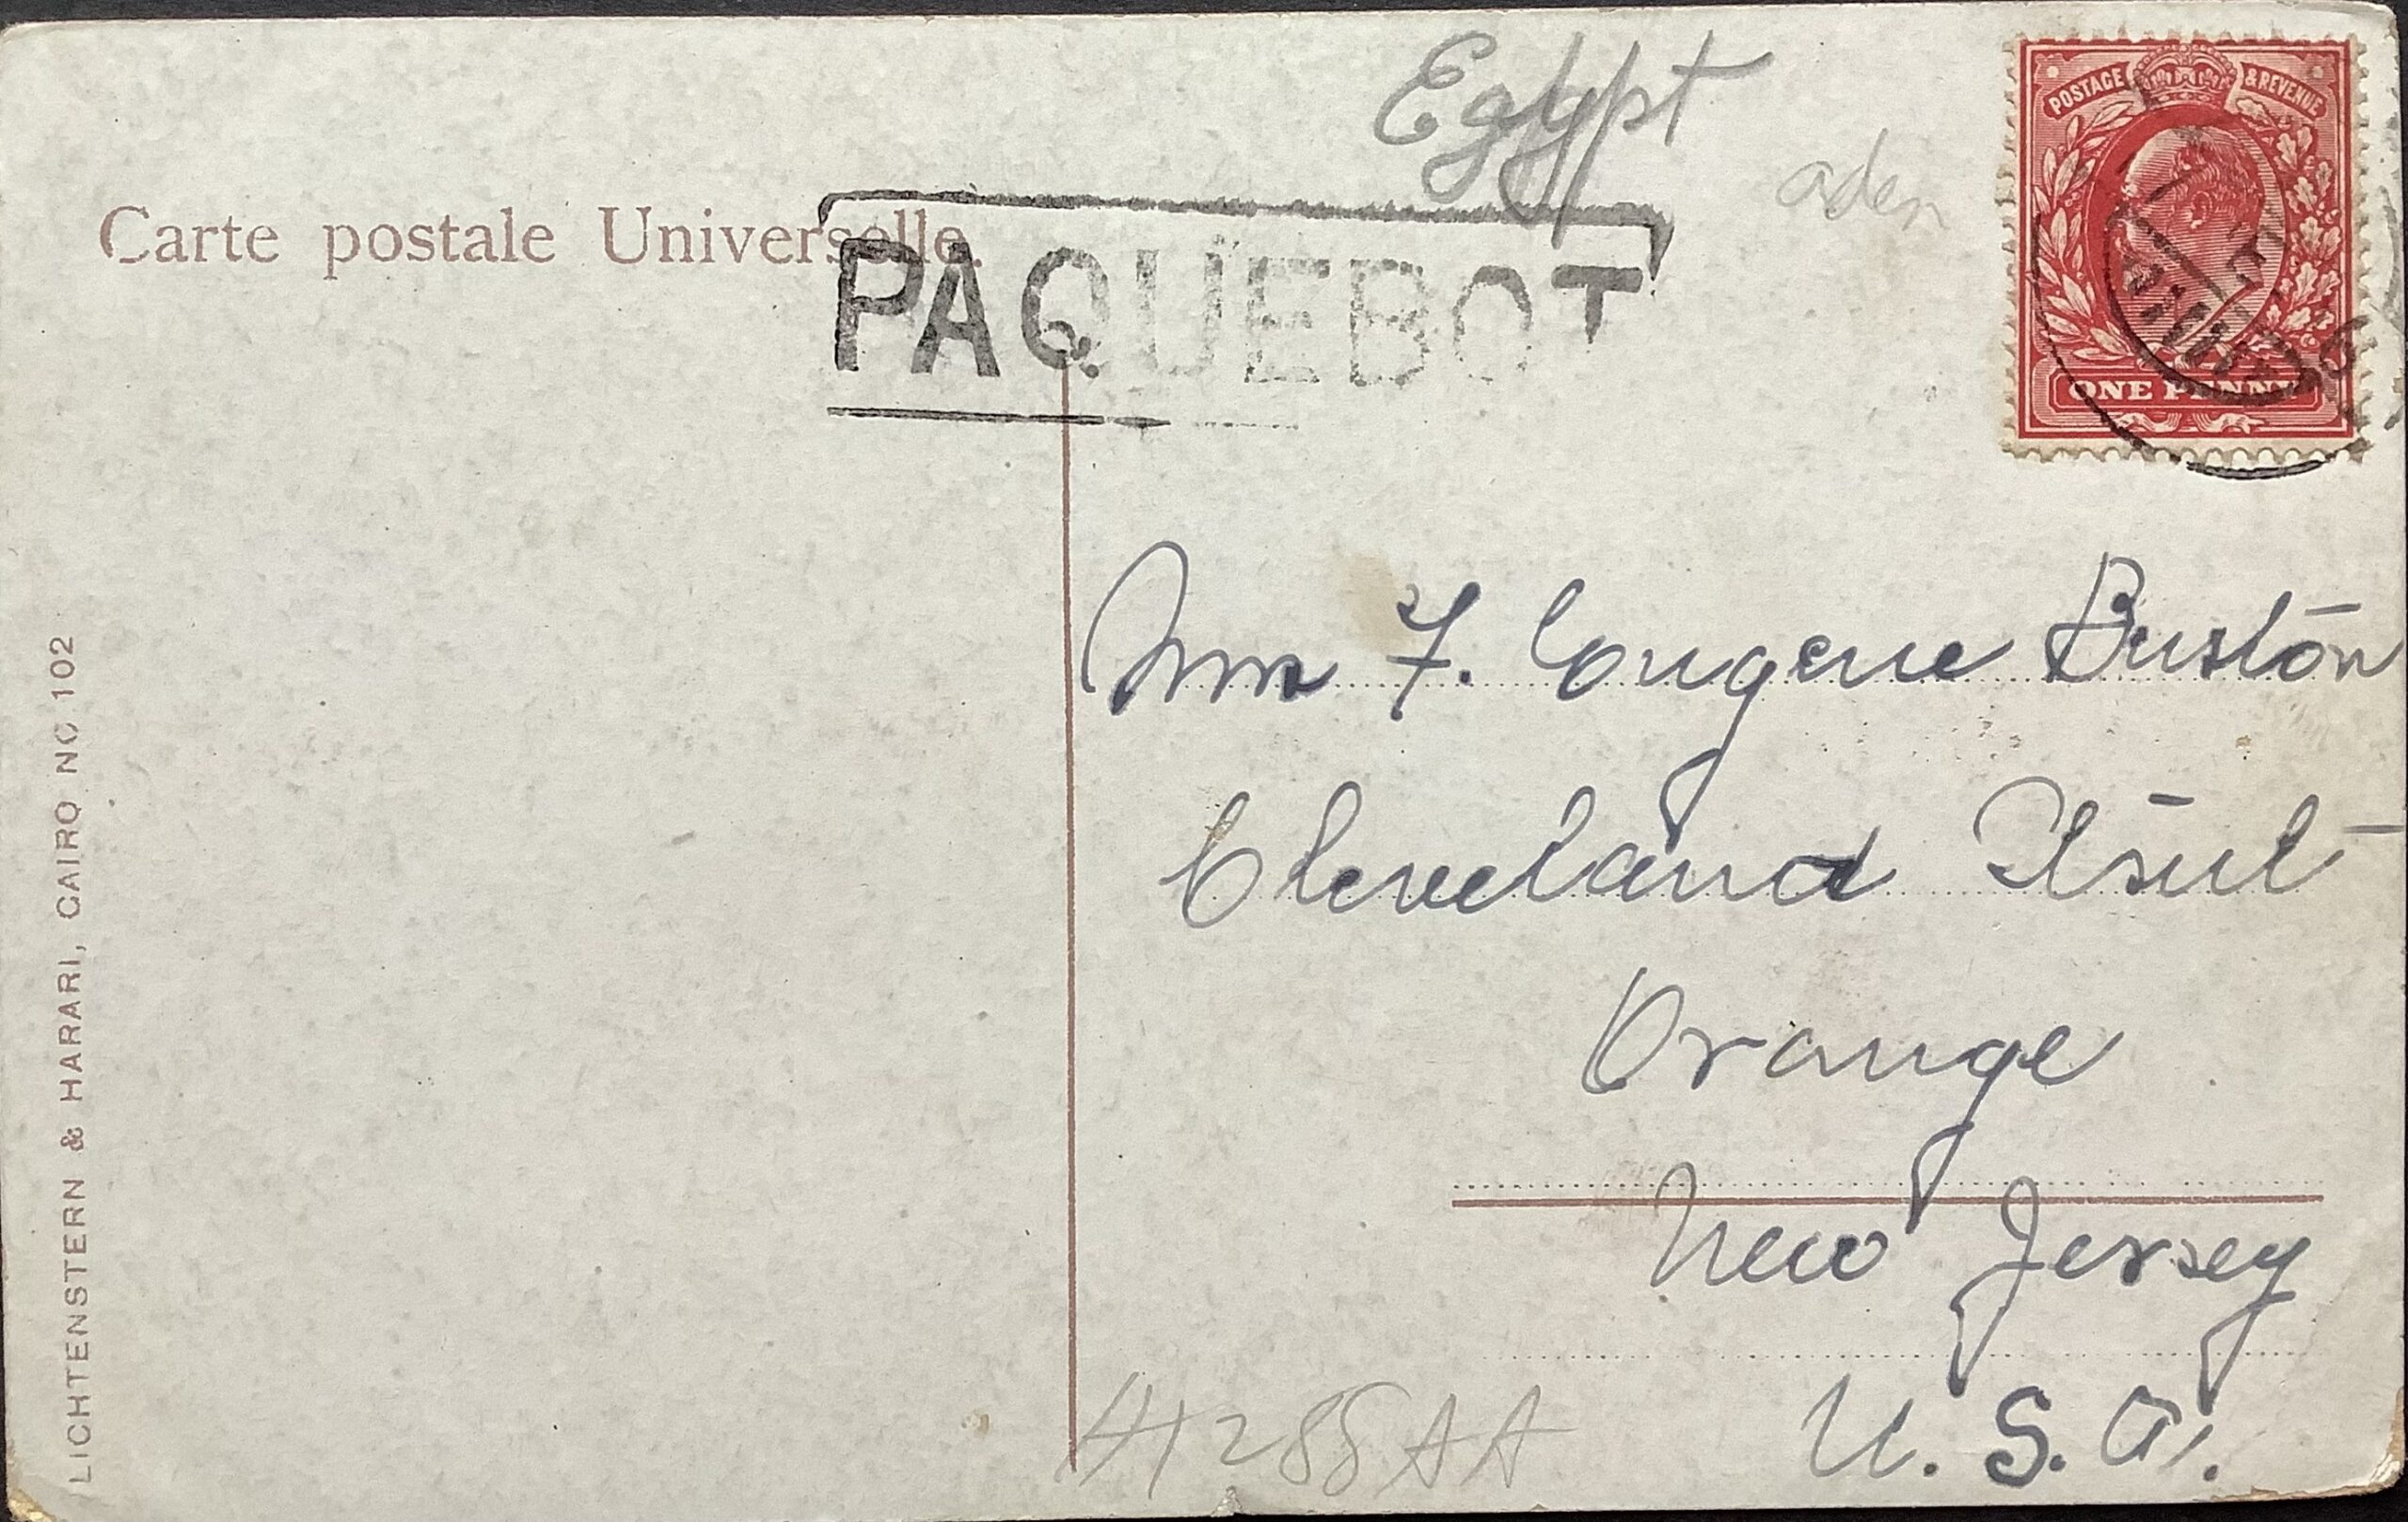 Egypt
aden
POSTAGE & REVENUE
ONE PENNY
Carte postale Universelle.
PAQUEBOT
Mrs F. Eugene Buston
Cleveland Street
Orange
New Jersey
U. S. A.
LICHTENSTERN & HARARI, CAIRO NO 102